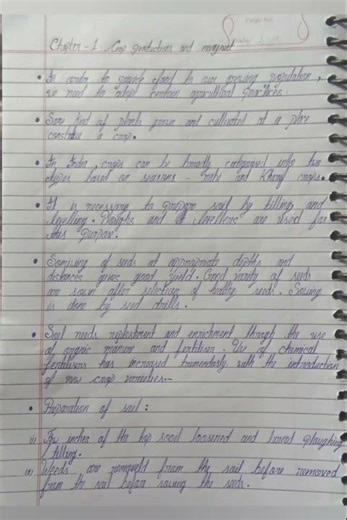 Chapter - 1 Crop productions and
• In order to provide food to our growing population,
we need to adopt certain agricultural practices.
• Same kind of plants grown and cultivated at a place
constitute a crop.
• In India, crops can be broadly categorised into two
types based on seasons - rabi and Kharif crops.
• It is necessary to prepare soil by tilling and
levelling. Ploughs and levellers are used for
this purpose.
• of seeds at appropriate depths and
distances gives good yield. Good variety of seeds
are sown after selection of healthy seeds. Sowing
is done by seed drills.
• Soil needs replenishment and enrichment through the use
of organic manure and fertilisers. Use of chemical
fertilisers has increased with the introduction
of new crop varieties.
• Preparation of soil:
of the top soil loosened and ploughing
/tilling.
Weeds are removed from the soil before removed
from the soil before sowing the seeds.